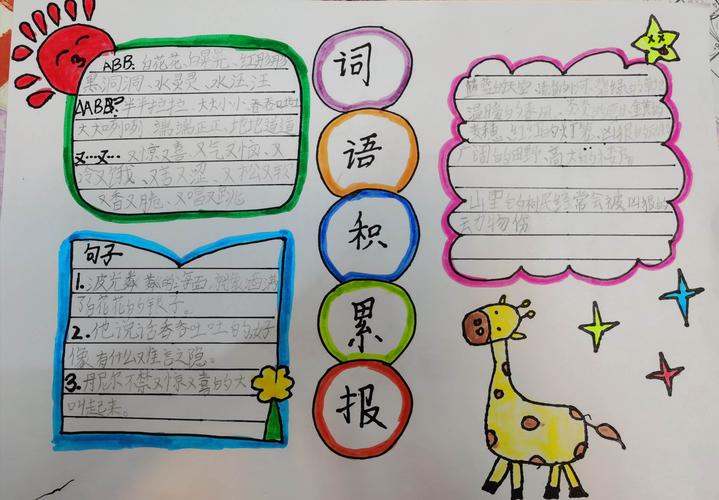 ABB: 白花花、白晃晃、红彤彤
黑洞洞、水灵灵、水汪汪
AABB: 半半拉拉、大大小小、吞吞吐吐
大大咧咧、端端正正、地地道道
又…又…又惊又喜、又气又恼、又
冷又饿、又苦又涩、又松又软
又香又脆、又唱又跳
句子
1.波光粼粼的海面,就象洒满
了白花花的银子。
2.他说话吞吞吐吐的,好
像有什么难言之隐。
3.丹尼尔不禁又惊又喜的大
叫起来。
词
语
积
累
报
蓝蓝的天空、
温暖的春日、
广阔的田野、高大的
山里的村民经常会被凶狠的
动物伤